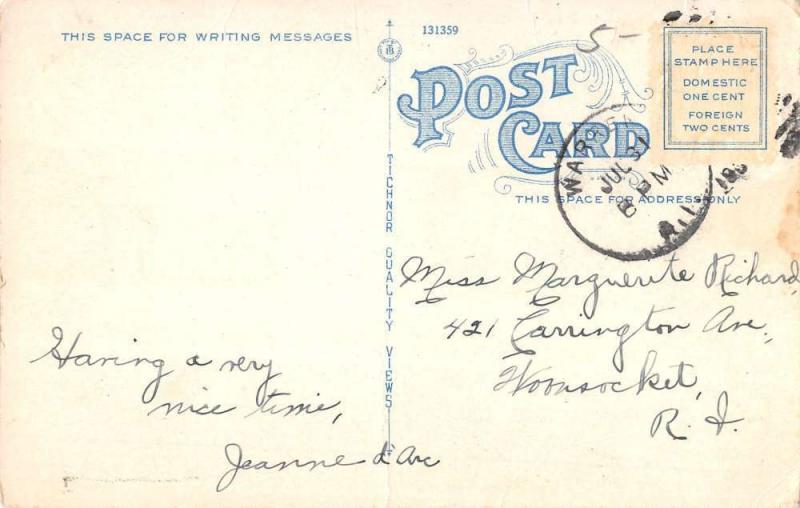 THIS SPACE FOR WRITING MESSAGES
131359
5-
PLACE
STAMP HERE
DOMESTIC
ONE CENT
FOREIGN
TWO CENTS
POST
CARD
JUL 31
PM
R.I.
THIS SPACE FOR ADDRESS ONLY
TICHNOR QUALITY VIEWS
Having a very
nice time,
Jeanne d'Arc
Miss Marguerite Richard,
421 Carrington Ave.,
Woonsocket,
R. I.